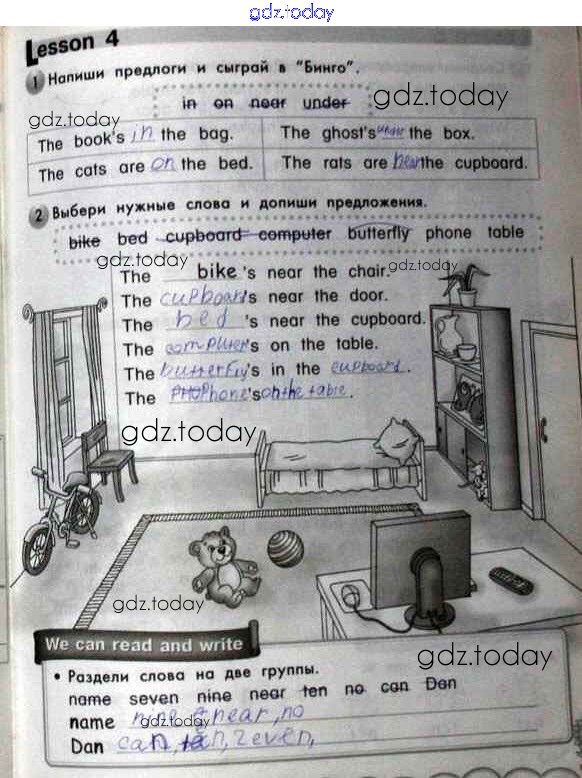 gdz.today
Lesson 4
1 Напиши предлоги и сыграй в "Бинго".
in on near under
gdz.today
gdz.today
The book's in the bag. The ghost's under the box.
The cats are on the bed. The rats are near the cupboard.
2 Выбери нужные слова и допиши предложения.
bike bed cupboard computer butterfly phone table
gdz.today
gdz.today
The bike's near the chair.
The cupboard's near the door.
The bed's near the cupboard.
The computer's on the table.
The butterfly's in the cupboard.
The phone's on the table.
gdz.today
gdz.today
We can read and write
gdz.today
• Раздели слова на две группы.
name seven nine near ten no can Dan
name nine, near, no
gdz.today
Dan can, ten, zeven,